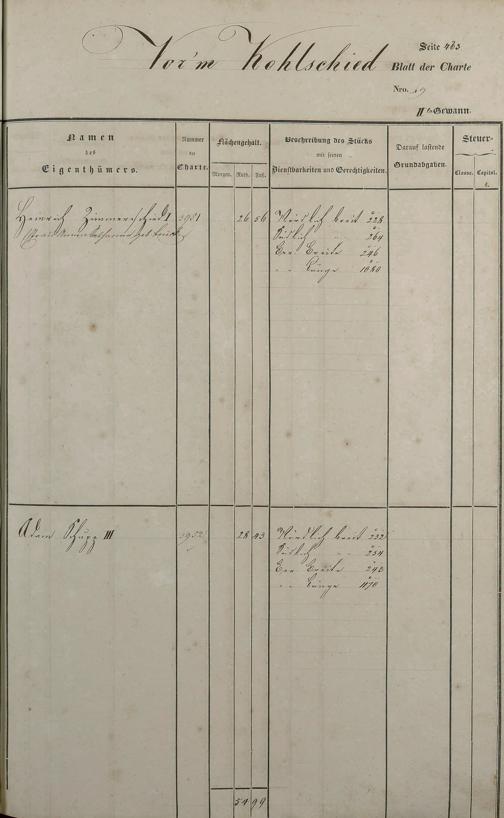 Vor'm Kohlschied
Seite 483
Blatt der Charte
Nro. 19
II te Gewann.
Namen des Eigenthümers.
Nummer der Charte.
Flächengehalt.
Morgen. Ruth. Fuß.
Beschreibung des Stücks mit seinen Dienstbarkeiten und Gerechtigkeiten.
Darauf lastende Grundabgaben.
Steuer-
Classe. Capital.
fl.
Heinrich Zimmerschiedt 3951 26 56 Nördlich breit 228
Südlich " 264
Ger. Breite 246
" " Länge 1080
Adam Schupp III 3952 28 43 Nördlich breit 232
Südlich " " 254
Ger. Breite 243
" " Länge 1170
54 99